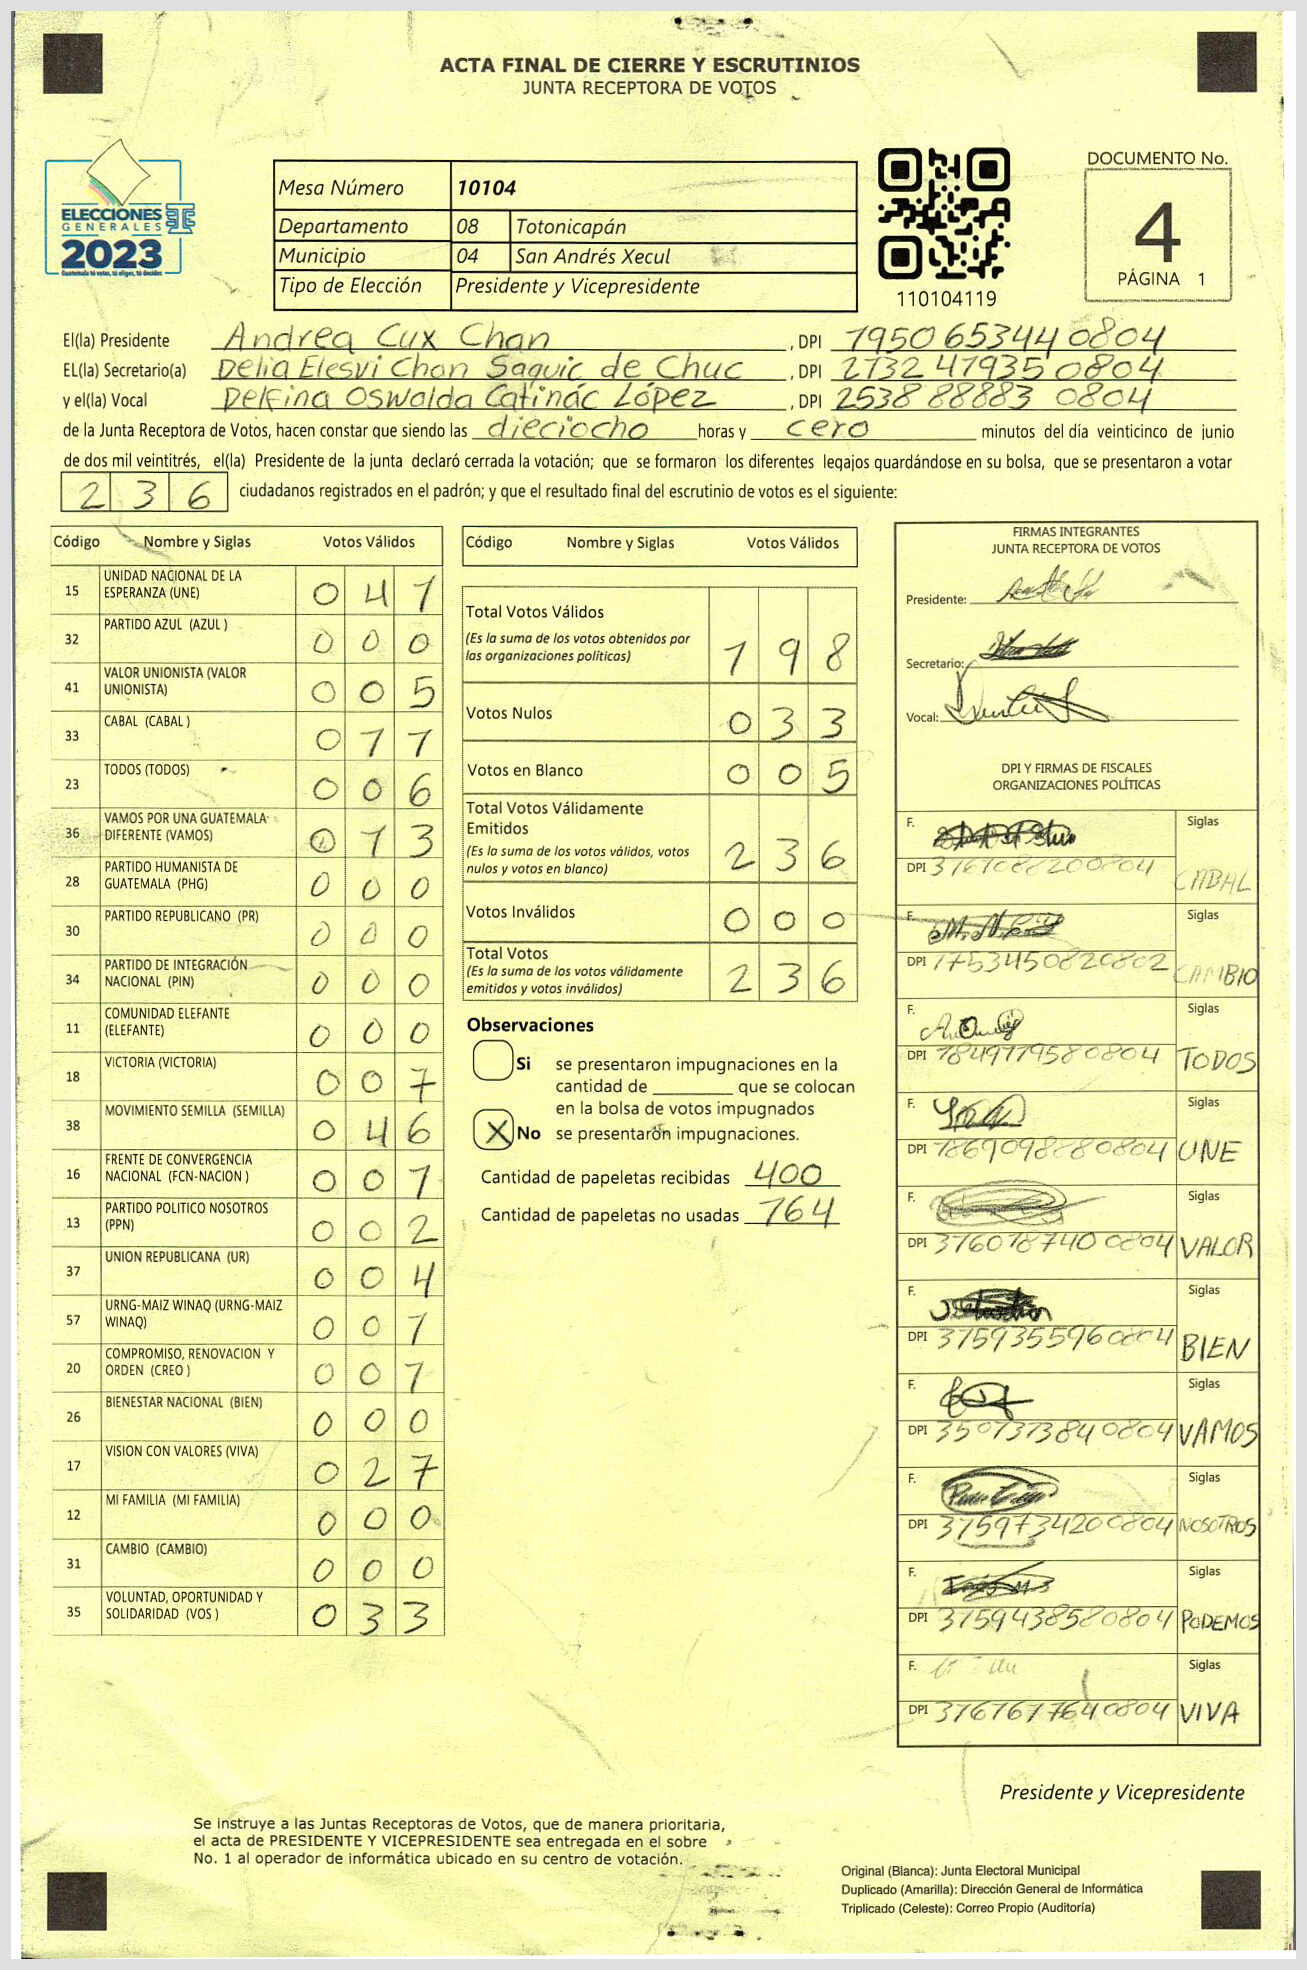 ACTA FINAL DE CIERRE Y ESCRUTINIOS
JUNTA RECEPTORA DE VOTOS
ELECCIONES
GENERALES
2023
Guatemala tú votas, tú eliges, tú decides
Mesa Número 10104
Departamento 08 Totonicapán
Municipio 04 San Andrés Xecul
Tipo de Elección Presidente y Vicepresidente
110104119
DOCUMENTO No.
4
PÁGINA 1
El(la) Presidente Andrea Cux Chan , DPI 1950 65344 0804
EL(la) Secretario(a) Delia Elesvi Chan Saquic de Chuc , DPI 2132 41935 0804
y el(la) Vocal Delfina Oswalda Catinác López , DPI 2538 88883 0804
de la Junta Receptora de Votos, hacen constar que siendo las dieciocho horas y cero minutos del día veinticinco de junio
de dos mil veintitrés, el(la) Presidente de la junta declaró cerrada la votación; que se formaron los diferentes legajos guardándose en su bolsa, que se presentaron a votar
236 ciudadanos registrados en el padrón; y que el resultado final del escrutinio de votos es el siguiente:
Código Nombre y Siglas Votos Válidos
15 UNIDAD NACIONAL DE LA
ESPERANZA (UNE) 041
32 PARTIDO AZUL (AZUL ) 000
41 VALOR UNIONISTA (VALOR
UNIONISTA) 005
33 CABAL (CABAL ) 011
23 TODOS (TODOS) 006
36 VAMOS POR UNA GUATEMALA
DIFERENTE (VAMOS) 013
28 PARTIDO HUMANISTA DE
GUATEMALA (PHG) 000
30 PARTIDO REPUBLICANO (PR) 000
34 PARTIDO DE INTEGRACIÓN
NACIONAL (PIN) 000
11 COMUNIDAD ELEFANTE
(ELEFANTE) 000
18 VICTORIA (VICTORIA) 007
38 MOVIMIENTO SEMILLA (SEMILLA) 046
16 FRENTE DE CONVERGENCIA
NACIONAL (FCN-NACION ) 001
13 PARTIDO POLITICO NOSOTROS
(PPN) 002
37 UNION REPUBLICANA (UR) 004
57 URNG-MAIZ WINAQ (URNG-MAIZ
WINAQ) 001
20 COMPROMISO, RENOVACION Y
ORDEN (CREO ) 001
26 BIENESTAR NACIONAL (BIEN) 000
17 VISION CON VALORES (VIVA) 027
12 MI FAMILIA (MI FAMILIA) 000
31 CAMBIO (CAMBIO) 000
35 VOLUNTAD, OPORTUNIDAD Y
SOLIDARIDAD (VOS ) 033
Código Nombre y Siglas Votos Válidos
Total Votos Válidos
(Es la suma de los votos obtenidos por
las organizaciones políticas) 198
Votos Nulos 033
Votos en Blanco 005
Total Votos Válidamente
Emitidos
(Es la suma de los votos válidos, votos
nulos y votos en blanco) 236
Votos Inválidos 000
Total Votos
(Es la suma de los votos válidamente
emitidos y votos inválidos) 236
Observaciones
Si se presentaron impugnaciones en la
cantidad de que se colocan
en la bolsa de votos impugnados
X No se presentarón impugnaciones.
Cantidad de papeletas recibidas 400
Cantidad de papeletas no usadas 164
FIRMAS INTEGRANTES
JUNTA RECEPTORA DE VOTOS
Presidente:
Secretario:
Vocal:
DPI Y FIRMAS DE FISCALES
ORGANIZACIONES POLÍTICAS
F. Siglas
DPI CABAL
F. Siglas
DPI CAMBIO
F. Siglas
DPI 1849119580804 TODOS
F. Siglas
DPI UNE
F. Siglas
DPI 3160181400804 VALOR
F. Siglas
DPI 3159355960804 BIEN
F. Siglas
DPI 3501313840804 VAMOS
F. Siglas
DPI NOSOTROS
F. Siglas
DPI 3159438580804 PODEMOS
F. Siglas
DPI VIVA
Presidente y Vicepresidente
Se instruye a las Juntas Receptoras de Votos, que de manera prioritaria,
el acta de PRESIDENTE Y VICEPRESIDENTE sea entregada en el sobre
No. 1 al operador de informática ubicado en su centro de votación.
Original (Blanca): Junta Electoral Municipal
Duplicado (Amarilla): Dirección General de Informática
Triplicado (Celeste): Correo Propio (Auditoría)